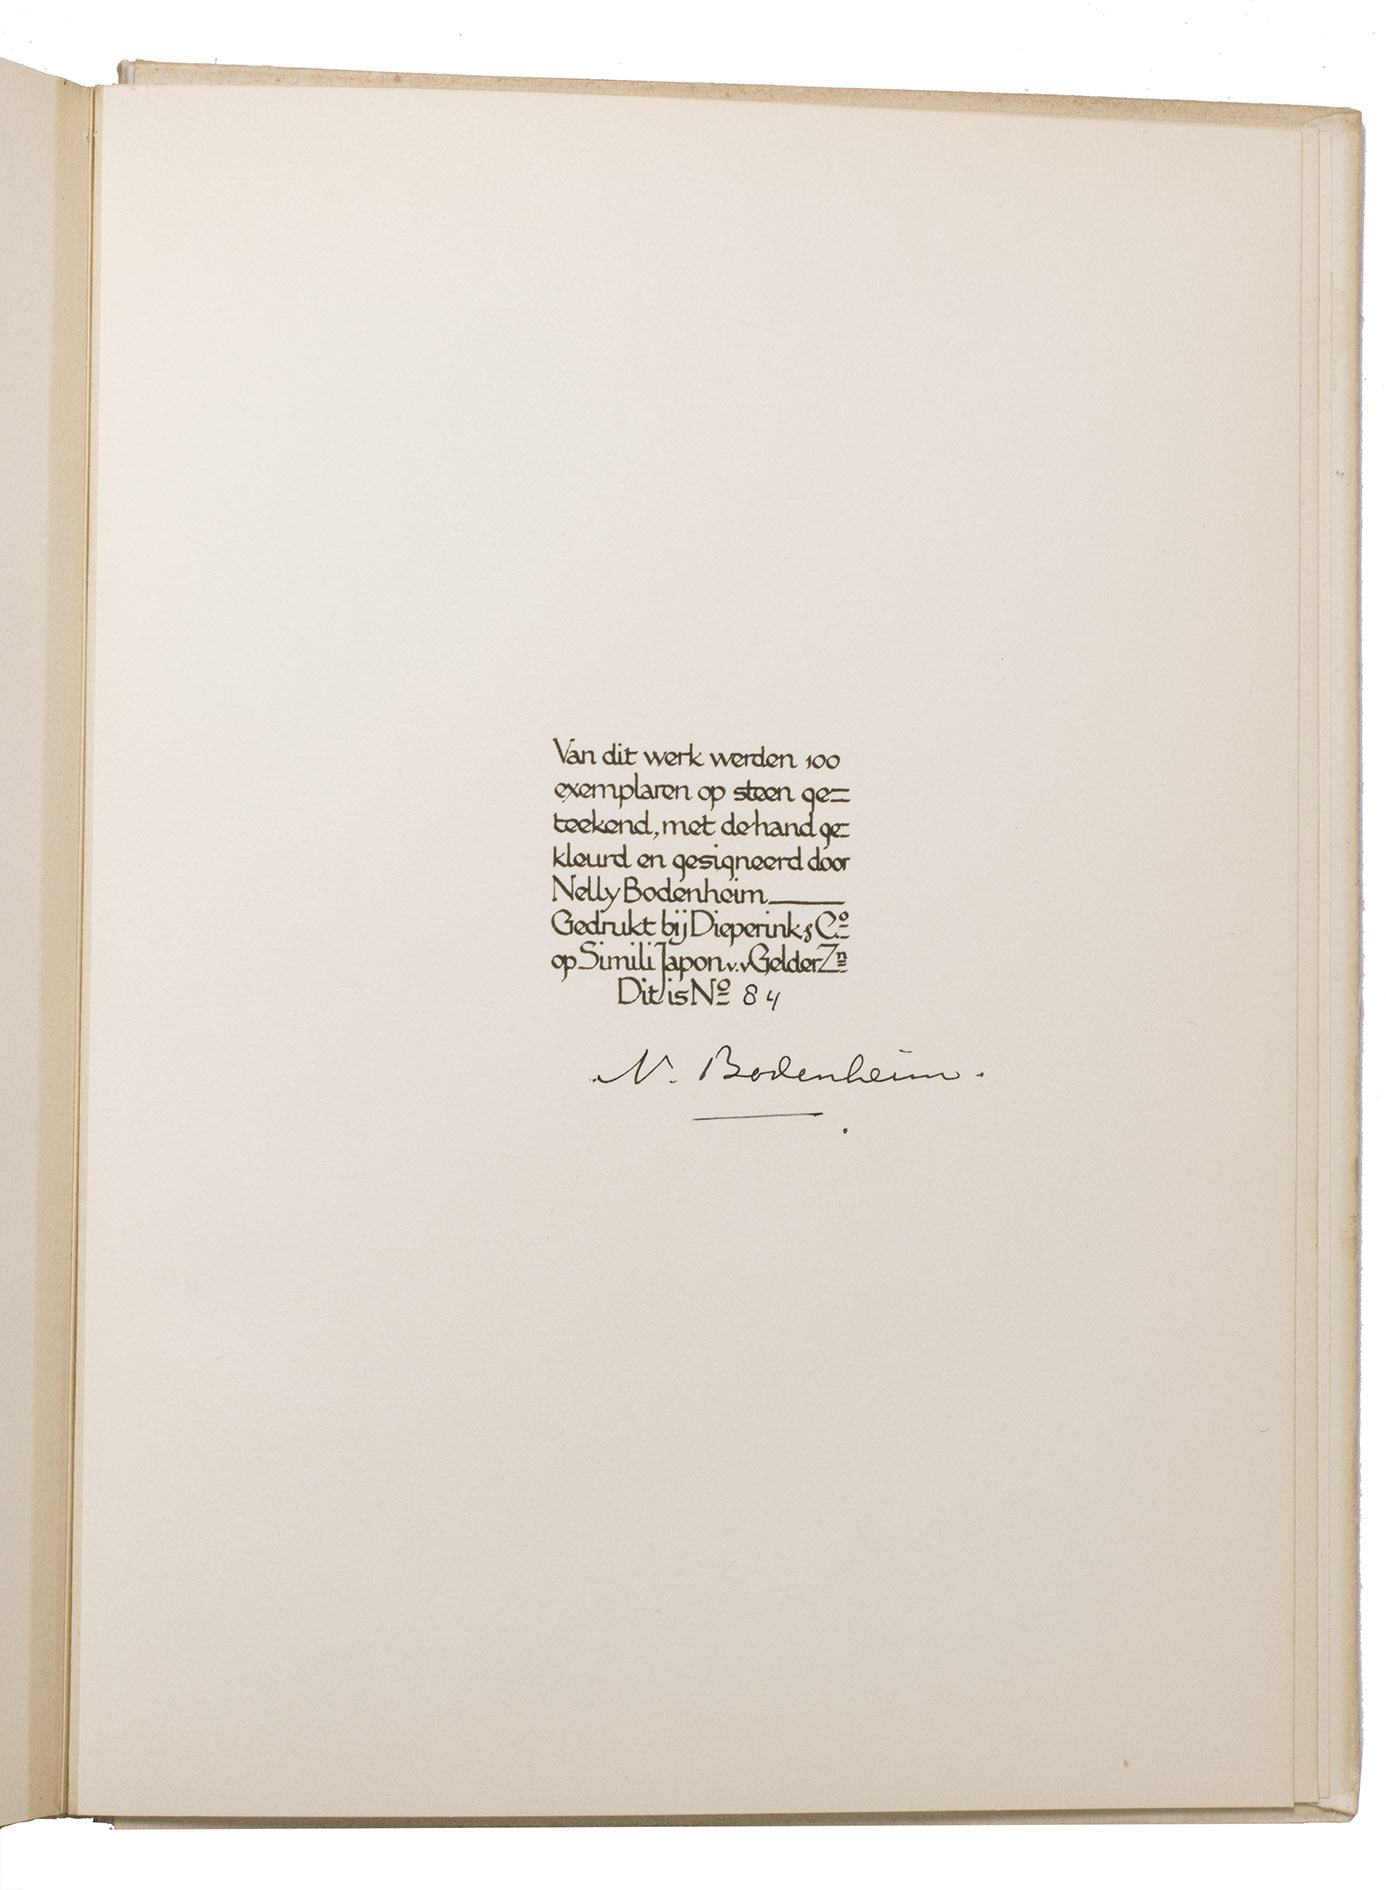 Van dit werk werden 100
exemplaren op steen ge=
teekend, met de hand ge=
kleurd en gesigneerd door
Nelly Bodenheim
Gedrukt bij Dieperink & Cº
op Simili Japon v. v. Gelder Zn
Dit is Nº 84
N. Bodenheim.